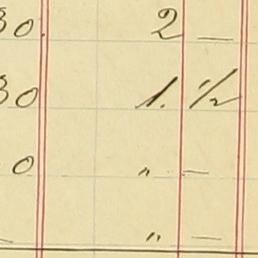 30. 2 —
30 1. 1/2
0 " —
" —